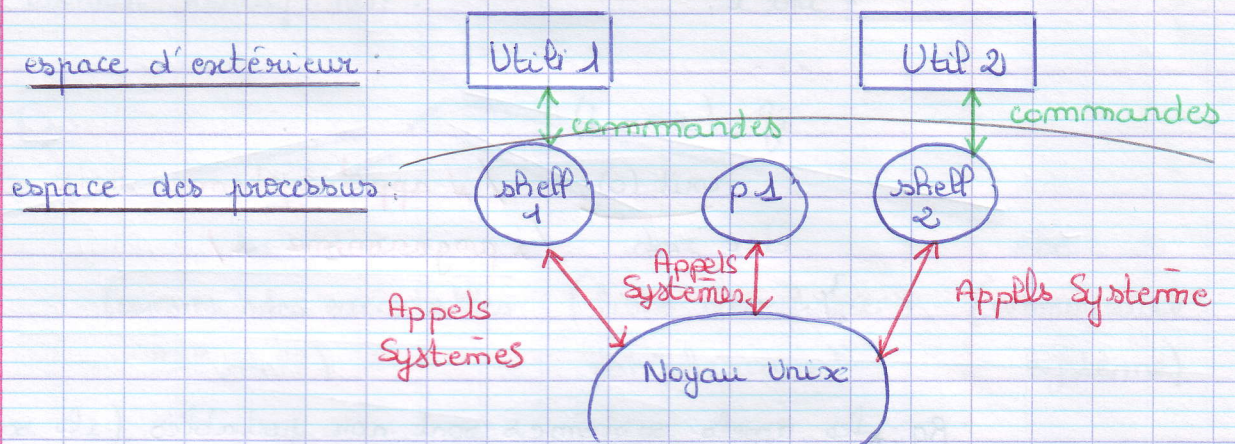 espace d'extérieur :
Utili 1
Util 2
commandes
commandes
espace des processus :
shell
1
p1
shell
2
Appels
Systèmes
Appels
Systèmes
Appels Système
Noyau Unix